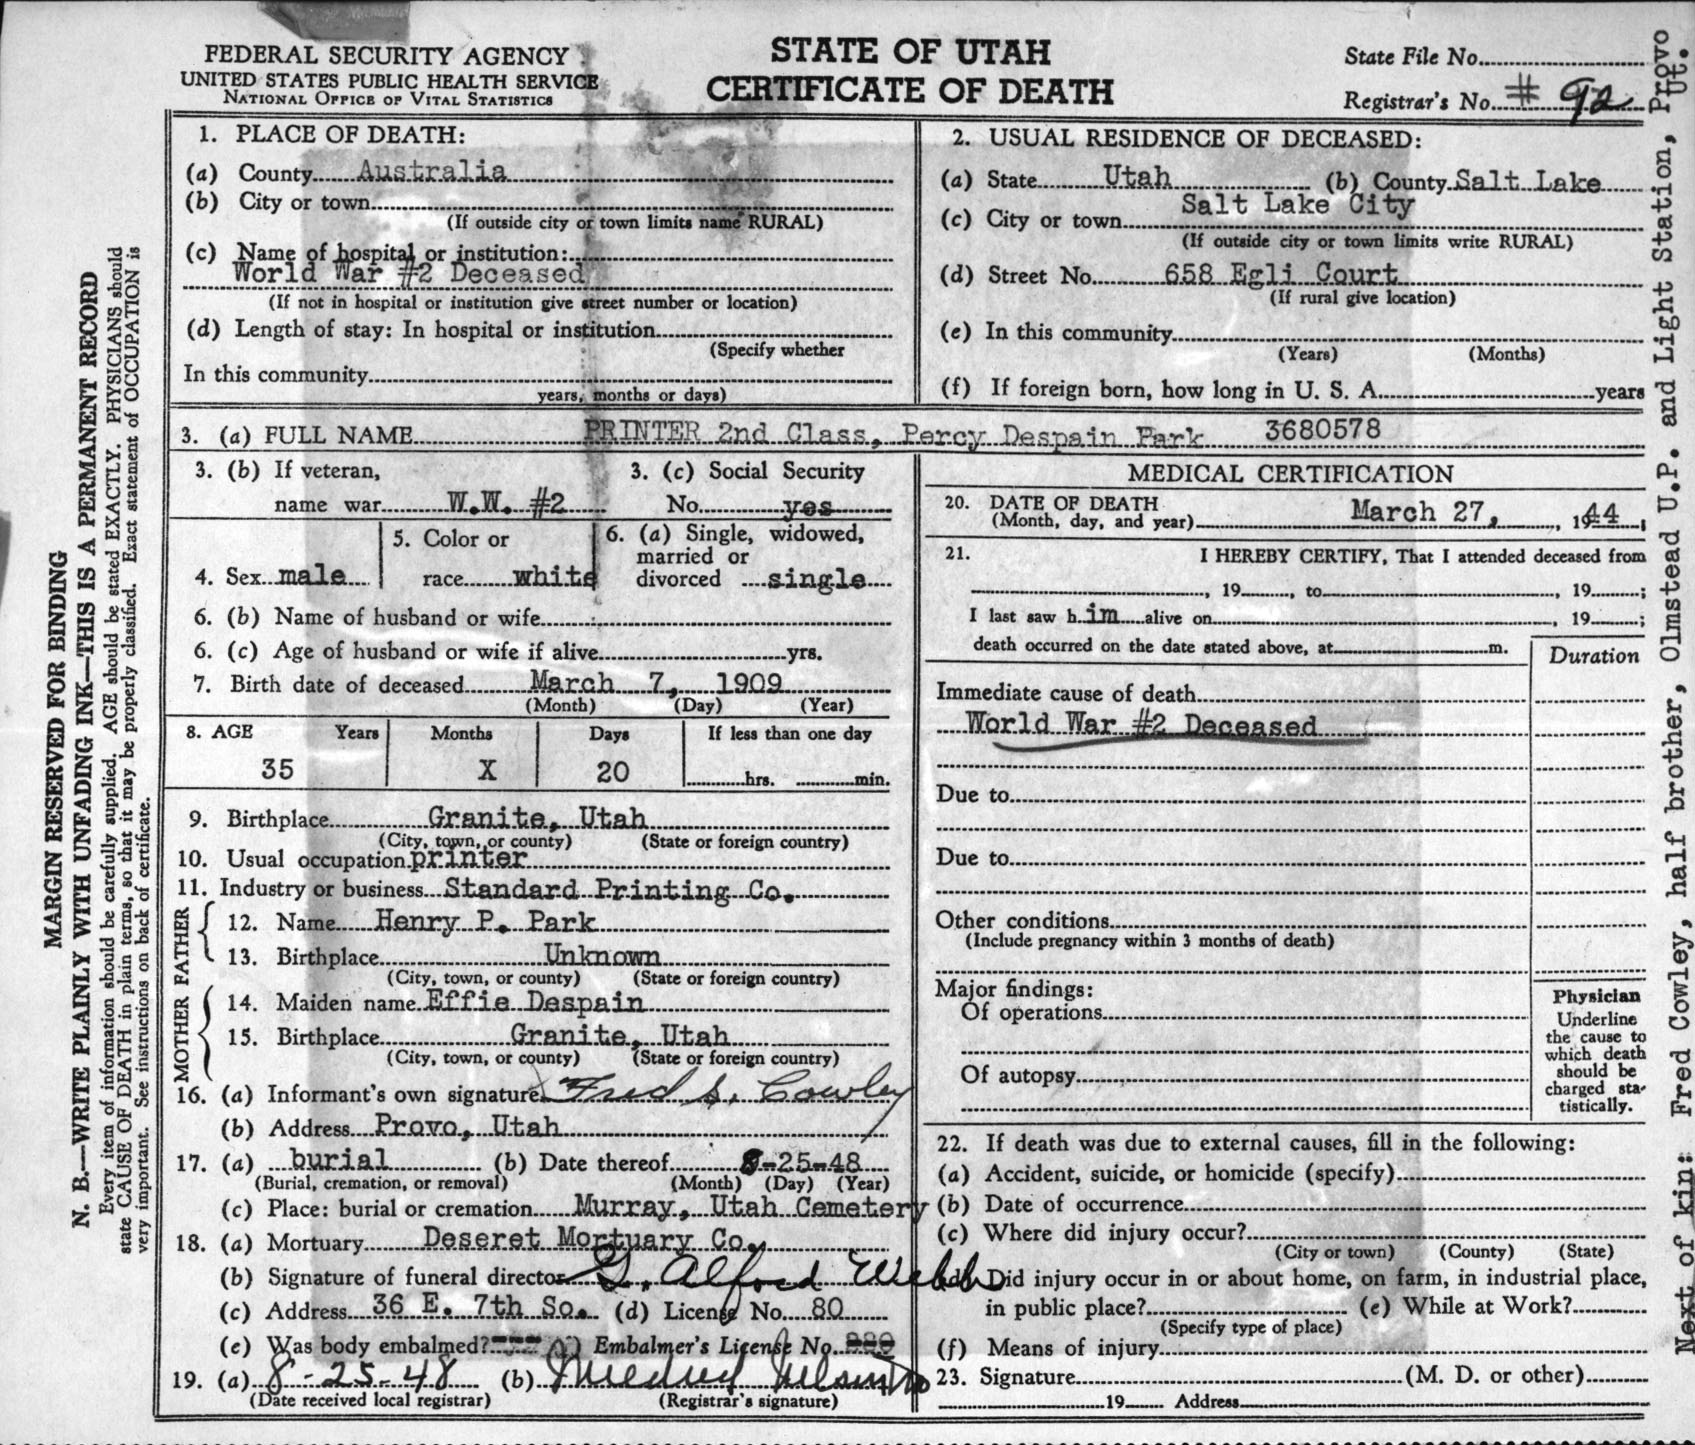 FEDERAL SECURITY AGENCY
UNITED STATES PUBLIC HEALTH SERVICE
NATIONAL OFFICE OF VITAL STATISTICS
STATE OF UTAH
CERTIFICATE OF DEATH
State File No.
Registrar's No. # 92
MARGIN RESERVED FOR BINDING
N. B.—WRITE PLAINLY WITH UNFADING INK—THIS IS A PERMANENT RECORD
Every item of information should be carefully supplied. AGE should be stated EXACTLY. PHYSICIANS should
state CAUSE OF DEATH in plain terms, so that it may be properly classified. Exact statement of OCCUPATION is
very important. See instructions on back of certificate.
1. PLACE OF DEATH:
(a) County Australia
(b) City or town
(If outside city or town limits name RURAL)
(c) Name of hospital or institution:
World War #2 Deceased
(If not in hospital or institution give street number or location)
(d) Length of stay: In hospital or institution
(Specify whether
In this community
years, months or days)
2. USUAL RESIDENCE OF DECEASED:
(a) State Utah (b) County Salt Lake
(c) City or town Salt Lake City
(If outside city or town limits write RURAL)
(d) Street No. 658 Egli Court
(If rural give location)
(e) In this community
(Years) (Months)
(f) If foreign born, how long in U. S. A. years
3. (a) FULL NAME PRINTER 2nd Class, Percy Despain Park 3680578
3. (b) If veteran,
name war W.W. #2
3. (c) Social Security
No. yes
4. Sex male
5. Color or
race white
6. (a) Single, widowed,
married or
divorced single
6. (b) Name of husband or wife
6. (c) Age of husband or wife if alive yrs.
7. Birth date of deceased March 7, 1909
(Month) (Day) (Year)
8. AGE Years Months Days If less than one day
35 X 20 hrs. min.
9. Birthplace Granite, Utah
(City, town, or county) (State or foreign country)
10. Usual occupation printer
11. Industry or business Standard Printing Co.
FATHER
12. Name Henry P. Park
13. Birthplace Unknown
(City, town, or county) (State or foreign country)
MOTHER
14. Maiden name Effie Despain
15. Birthplace Granite, Utah
(City, town, or county) (State or foreign country)
16. (a) Informant's own signature Fred S. Cowley
(b) Address Provo, Utah
17. (a) burial (b) Date thereof 8-25-48
(Burial, cremation, or removal) (Month) (Day) (Year)
(c) Place: burial or cremation Murray, Utah Cemetery
18. (a) Mortuary Deseret Mortuary Co.
(b) Signature of funeral director G. Alford Webb
(c) Address 36 E. 7th So. (d) License No. 80
(e) Was body embalmed? Embalmer's License No.
19. (a) 8-25-48 (b) Mildred
(Date received local registrar) (Registrar's signature)
MEDICAL CERTIFICATION
20. DATE OF DEATH
(Month, day, and year) March 27, , 1944,
21. I HEREBY CERTIFY, That I attended deceased from
, 19 , to , 19 ;
I last saw h im alive on , 19 ;
death occurred on the date stated above, at m.
Duration
Immediate cause of death
World War #2 Deceased
Due to
Due to
Other conditions
(Include pregnancy within 3 months of death)
Major findings:
Of operations
Of autopsy
Physician
Underline
the cause to
which death
should be
charged sta-
tistically.
22. If death was due to external causes, fill in the following:
(a) Accident, suicide, or homicide (specify)
(b) Date of occurrence
(c) Where did injury occur?
(City or town) (County) (State)
(d) Did injury occur in or about home, on farm, in industrial place,
in public place? (e) While at Work?
(Specify type of place)
(f) Means of injury
23. Signature (M. D. or other)
19 Address
Next of kin: Fred Cowley, half brother, Olmstead U.P. and Light Station, Provo
Ut.